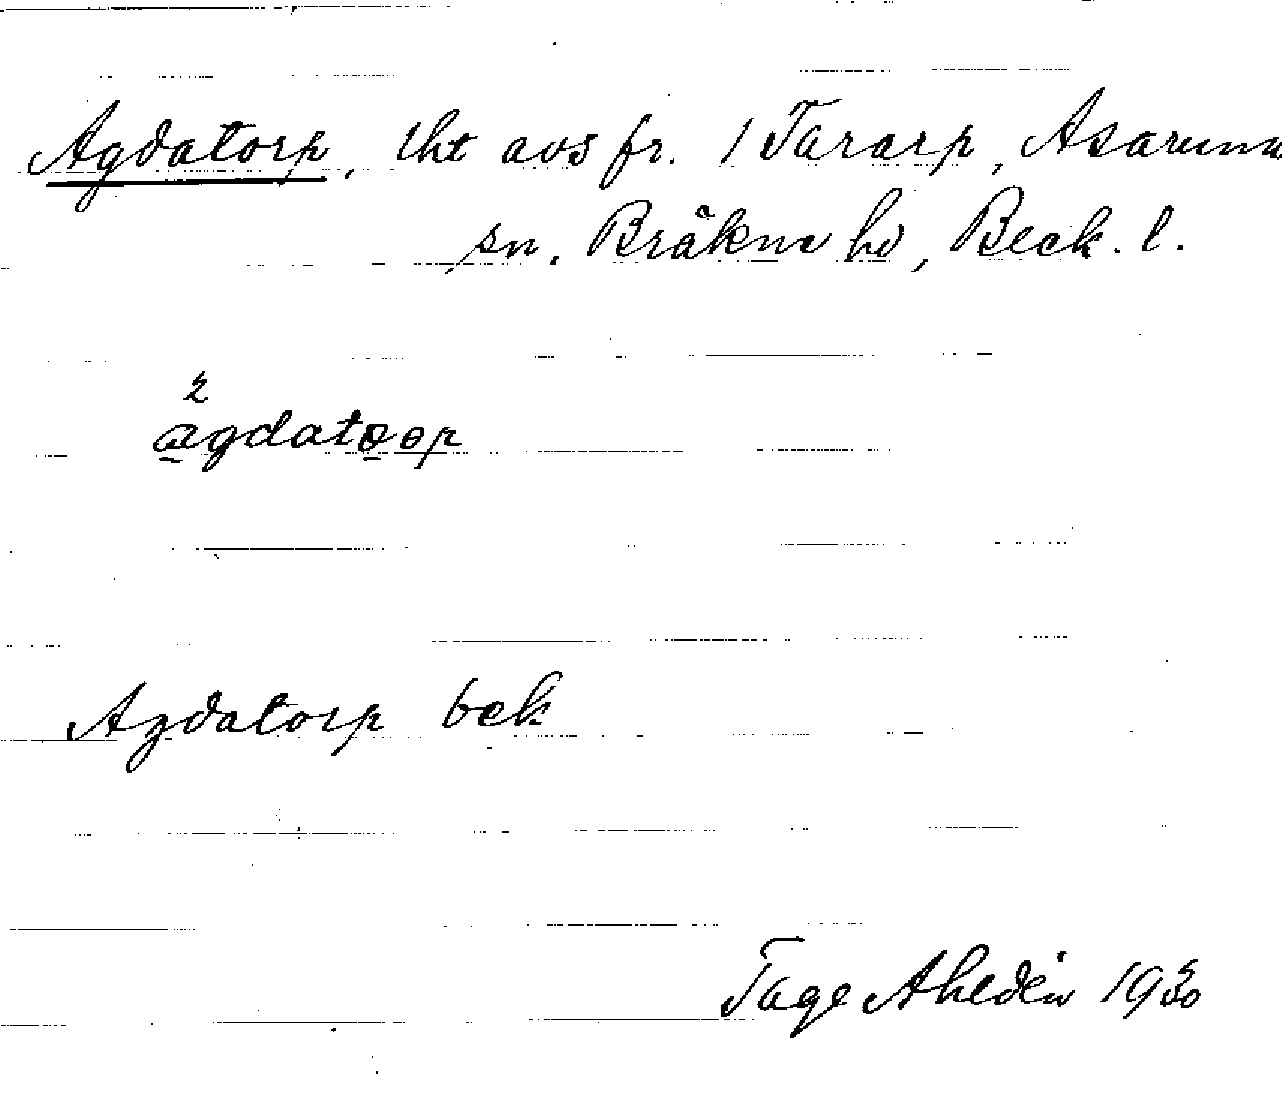 Agdatorp, lht avs fr. 1 Tararp, Asarum
sn. Bräkne hd, Bleck. l.
2
agdatoop
Agdatorp bek
Tage Ahldén 1930